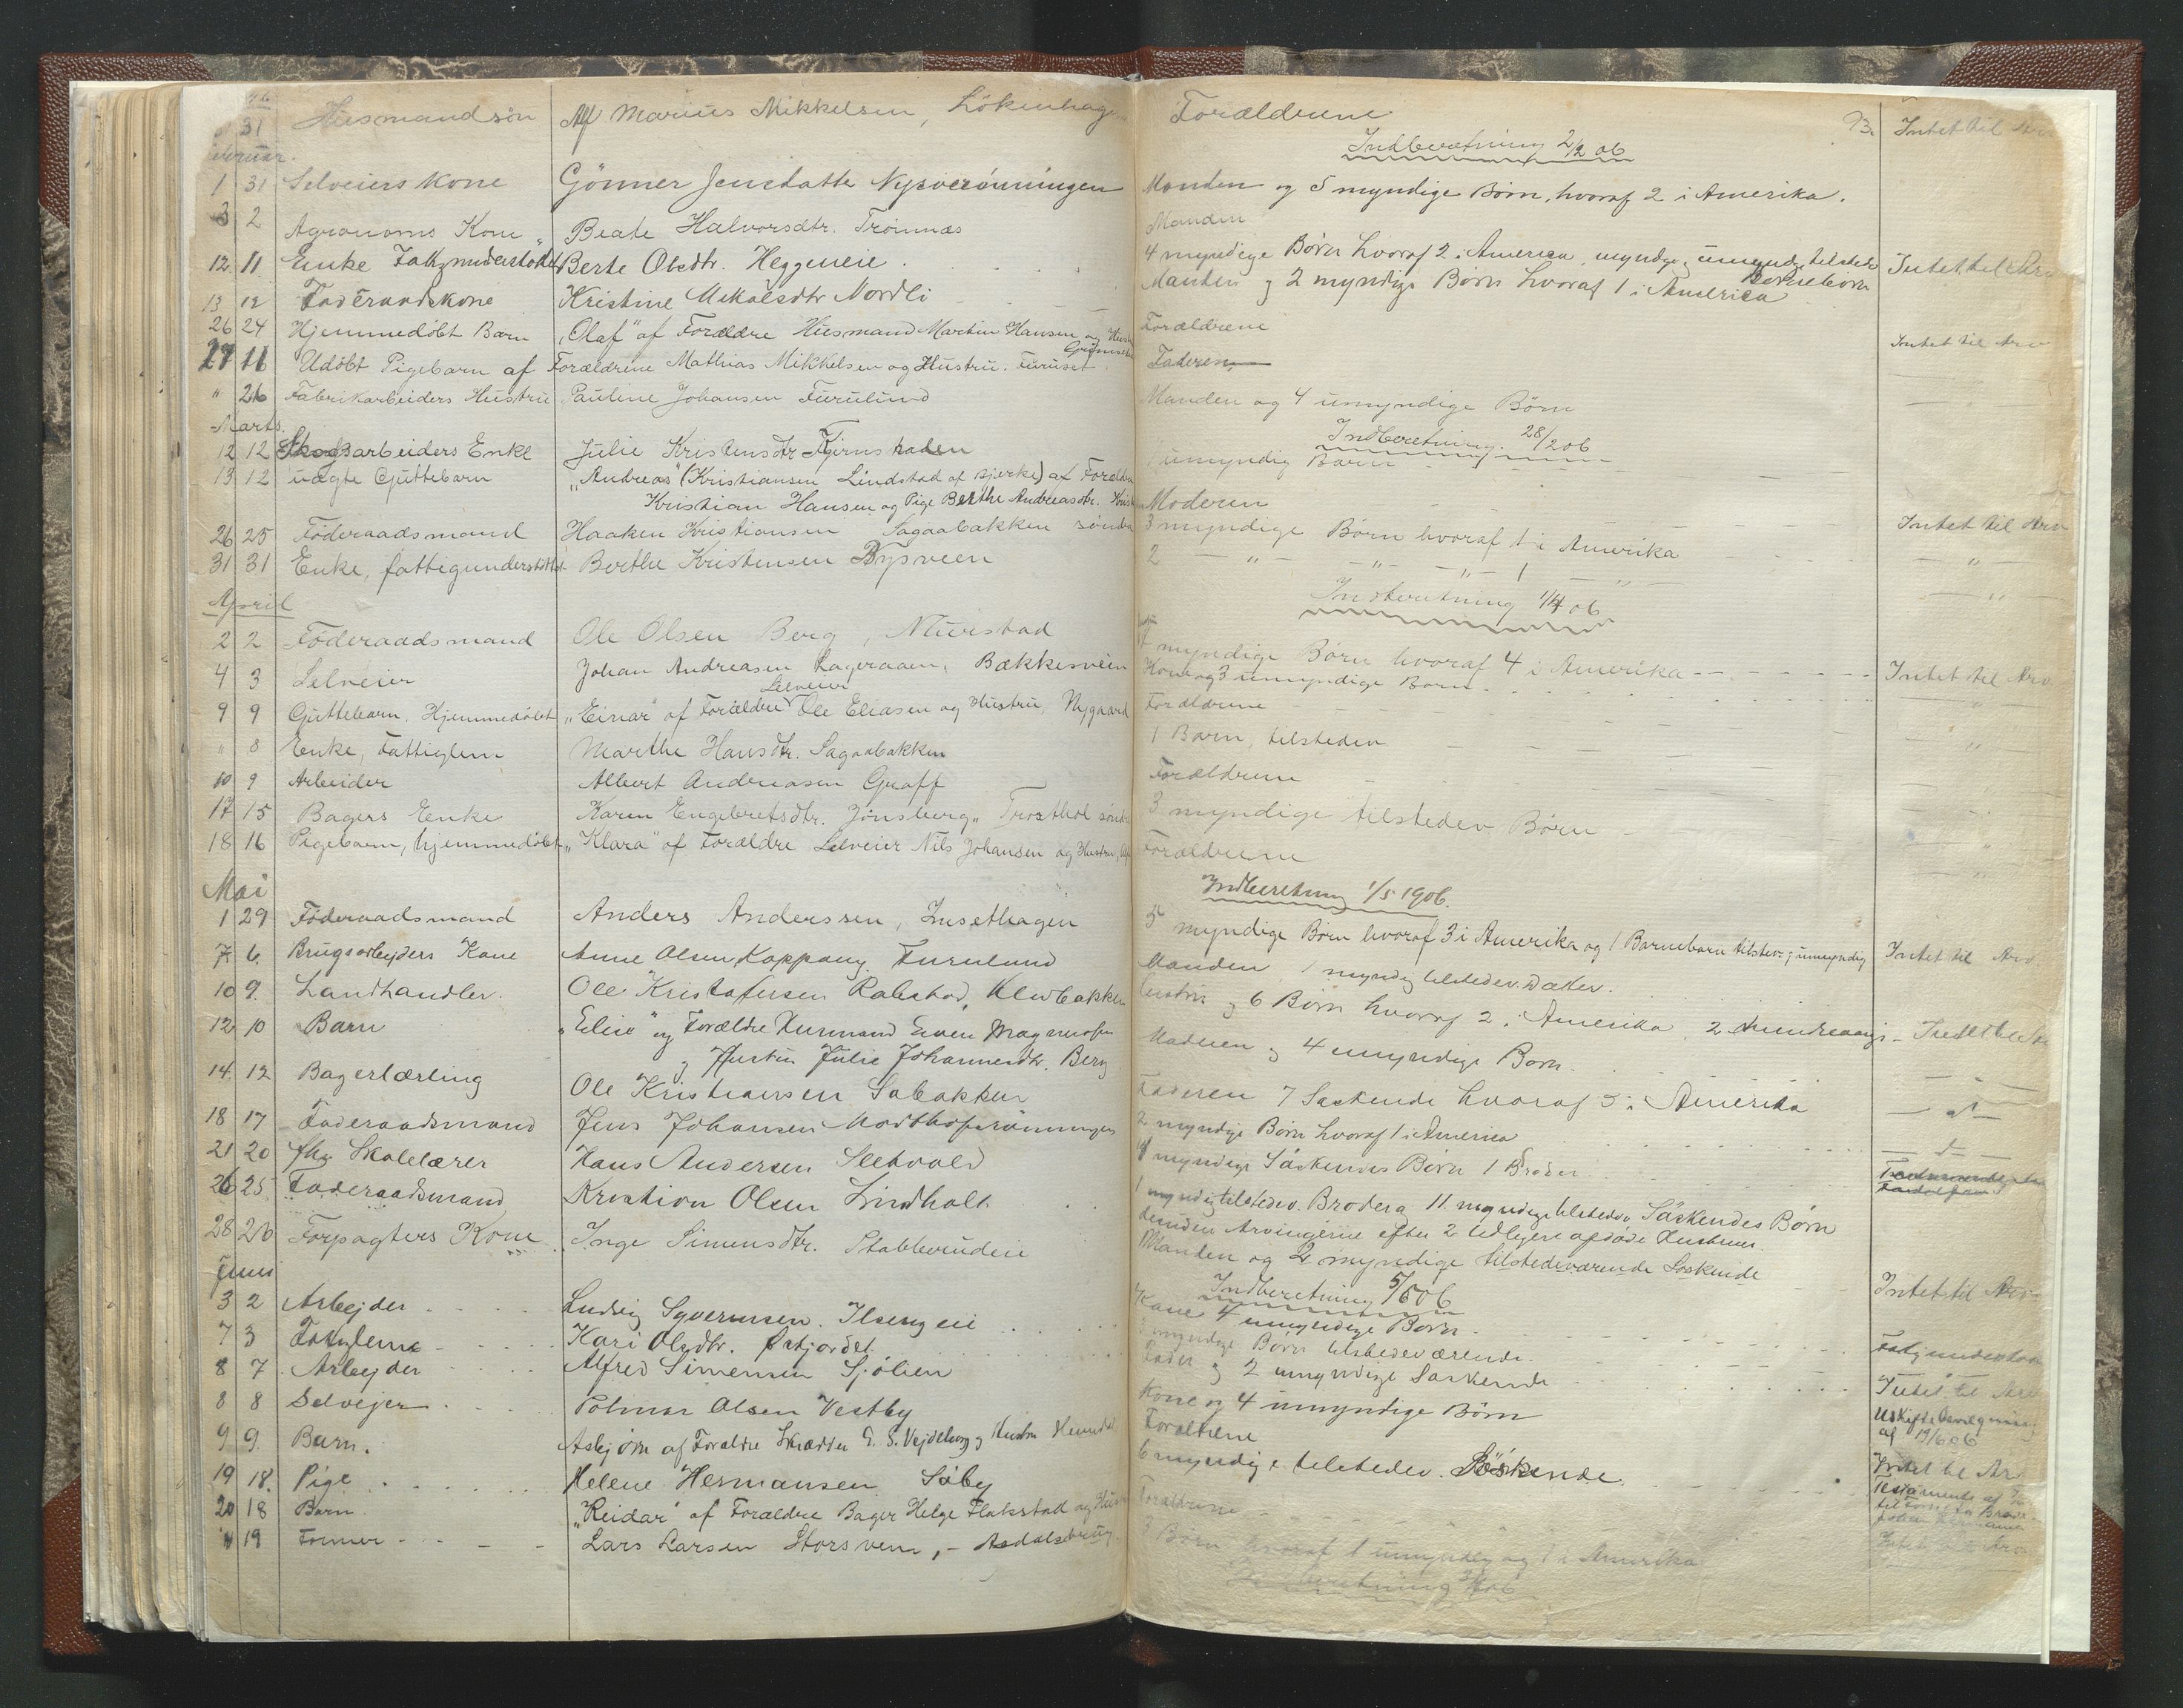 31 Husmandssön Af Marius Mikkelsen, Lökenhag
Forældrene 93. Intet til Arv
Februar.
Indberetning 2/2 06
1 31 Selveiers Kone Gönner Jensdatte Nysverönningen
Manden og 5 myndige Börn, hvoraf 2 i Amerika.
3 2 Agronoms Kone Beate Halvorsdtr. Trönnæs
Manden
12 11 Enke Berte Olsdtr. Heggeneie.
4 myndige Børn hvoraf 2 i America, myndige umyndige tilstede Børnebørn Intet til Arv
13 12 Föderaadskone Kristine Mikalsdtr Nordli
Manden og 2 myndige Børn hvoraf 1 i America
26 24 Hjemmedöbt Barn „Olaf" af Forældre Husmand Martin Hansen og Hustru
Forældrene
27 11 Udöbt Pigebarn af Forældrene Mathias Mikkelsen og Hustru. Furuset
Faderen Intet til Arv
" 26 Fabrikarbeiders Hustru Pauline Johansen Furulund
Manden og 4 umyndige Börn
Marts.
Indberetning. 28/2 06
12 12 Skogsarbeiders Enke Julie Kristensdtr Tjernstaden
umyndig Barn
13 12 uægte Guttebarn „Andreas" (Kristiansen Lindstad af Bjerke) af Forældre
Kristian Hansen og Pige Berthe Andreasdtr.
Moderen
26 25 Föderaadsmand Haaken Kristiansen Sagaabakken söndre
3 myndige Börn hvoraf 1 i Amerika Intet til Arv
31 31 Enke, fattigunderstöttet Berthe Kristensen Bysveen
2 — " — — " — — " — 1 — " — — " —
April
Indberetning 1/4 06 — " —
2 2 Föderaadsmand Ole Olsen Berg, Nurstad
7 myndige Börn hvoraf 4 i Amerika Intet til Arv
4 3 Selveier Johan Andreasen Lageraaen, Bækkesveen
Kone og 3 umyndige Börn "
Selveier
9 9 Guttebarn, Hjemmedöbt „Einar" af Forældre Ole Eliasen og Hustru, Nygaard
Forældrene
" 8 Enke, Fattiglem Marthe Hansdtr. Sagaabakken
1 Barn, tilstedev "
10 9 Arbeider Albert Andreasen Graff
Forældrene
17 15 Bagers Enke Karen Engebretsdtr. Jönsberg, Trosthol söndre
3 myndige tilstedev Börn
18 16 Pigebarn, hjemmedöbt „Klara" af Forældre Selveier Nils Johansen og Hustru,
Forældrene "
Mai
Indberetning 1/5 1906.
1 29 Föderaadsmand Anders Anderssen, Insethagen
5 myndige Börn hvoraf 3 i Amerika og 1 Barnebarn tilstev. umyndig Intet til Arv
7 6 Brugsarbeyders Kone Anne Olsen Koppang. Furulund
Manden 1 myndig tilstedev. Datter.
10 9. Landhandler. Ole Kristofersen Rabstad, Klevbakken
Hustru og 6 Børn hvoraf 2 i Amerika, 2
12 10 Barn „Elise" af Forældre Husmand Even Magnussen
og Hustru Julie Johannesdtr. Berg
Moderen og 4 umyndige Børn.
14. 12 Bagerlærling Ole Kristiansen Sobakken
Faderen 7 Søskende hvoraf 5 i Amerika
18 17 Føderaadsmand Jens Johansen Modthofsrønningen
2 myndige Børn hvoraf 1 i America
21 20 fhv Skolelærer Hans Andersen Seetvold
4 myndige Søskendes Børn 1 Broder
26 25 Føderaadsmand Kristian Olsen Lindholt.
1 myndig tilstedev. Broder og 11 myndige tilstedev. Søskendes Børn
desuden Arvingerne efter 2 tidligere afdøde Hustruer.
28 26 Forpagters Kone Inge Simensdtr. Stabberudeie
Manden og 2 umyndige tilstedeværende Söskende
Juni
Indberetning 5/6 06 Intet til Arv
3 2 Arbejder Ludvig Syversen. Ilseng eie
Kone 4 umyndige Børn.
7 3 Fattiglem Kari Olsdtr. Østjordet
myndige Børn tilstedeværende.
8 7 Arbejder Alfred Simensen Sjølien
Fader og 2 umyndige Søskende Intet til Arv
8 8 Selvejer Polmar Olsen Vestby
Kone og 4 umyndige Börn Uskiftebevilgning
af 19/6 06
9 9. Barn. Asbjørn af Forældre Skrædder E. S. Vejdeborg og Hustru
Forældrene
19 18. Pige Helene Hermansen Søby
6 myndige tilstedev. Söskende. Intet til Arv
20 18 Barn „Reidar" af Forældre Bager Helge Flakstad og Hustru
Forældrene
" 19 Former Lars Larsen Storsveen, - Aadalsbrug.
3 Börn hvoraf 1 umyndig og 1 i Amerika
Indberetning